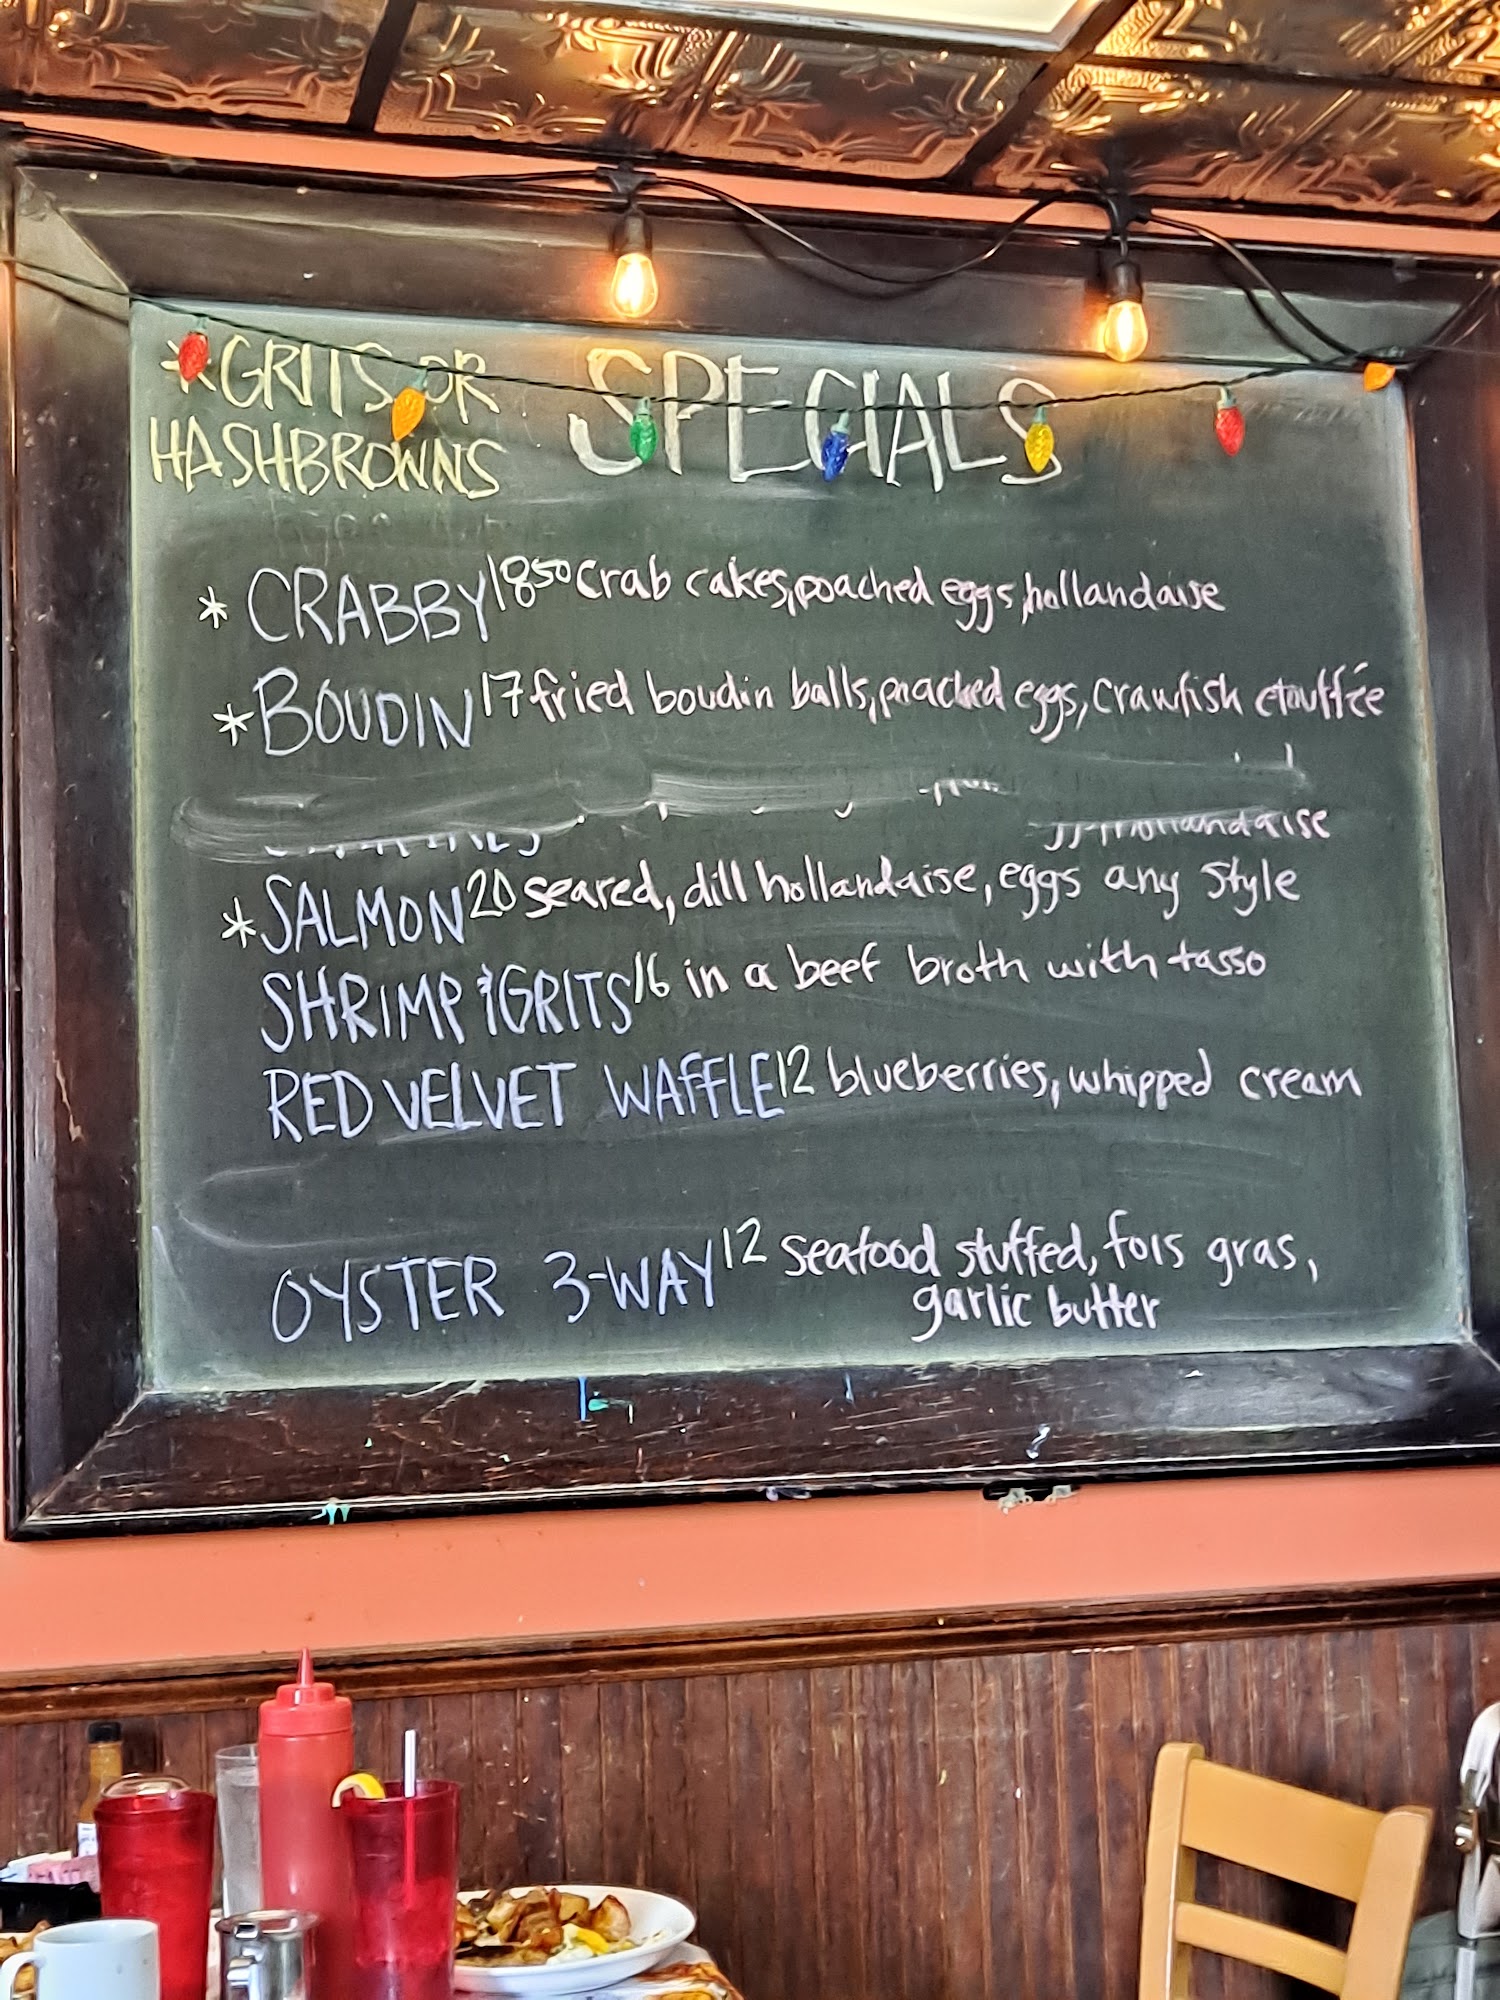 *GRITS OR
HASHBROWNS
SPECIALS
* CRABBY 1850 crab cakes, poached eggs, hollandaise
* BOUDIN 17 fried boudin balls, poached eggs, crawfish etouffée
hollandaise
* SALMON 20 seared, dill hollandaise, eggs any style
SHRIMP & GRITS 16 in a beef broth with tasso
RED VELVET WAFFLE 12 blueberries, whipped cream
OYSTER 3-WAY 12 seafood stuffed, fois gras,
garlic butter